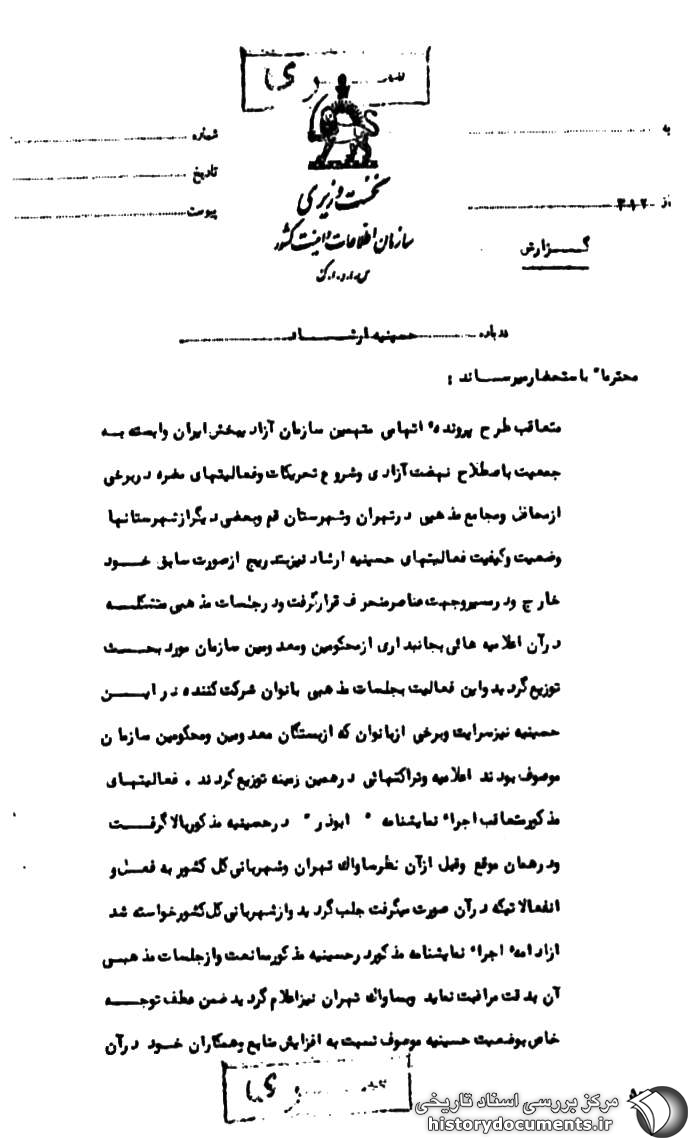 خیلی سری
به
شماره
تاریخ
از ۳۱۲
پیوست
نخست وزیری
سازمان اطلاعات و امنیت کشور
س.ا.و.ا.ک
گـــزارش
درباره حسینیه ارشـــاد
محترماً باستحضار میرســاند :
متعاقب طرح پرونده اتهامی متهمین سازمان آزاد یبخش ایران وابسته بــه
جمعیت باصطلاح نهضت آزادی وشروع تحریکات وفعالیتهای مضره دربرخی
ازمحافل ومجامع مذهبی درتهران وشهرستان قم وبعضی دیگرازشهرستانها
وضعیت وکیفیت فعالیتهای حسینیه ارشاد نیزبتدریج ازصورت سابق خــود
خارج ودرمسیروجهت عناصرمنحرف قرارگرفت ودرجلسات مذهبی متشکلــه
درآن اعلامیه هائی بجانبداری ازمحکومین ومعدومین سازمان مورد بحــث
توزیع گردید واین فعالیت بجلسات مذهبی بانوان شرکت کننده در ایــن
حسینیه نیزسرایت وبرخی ازبانوان که ازبستگان معدومین ومحکومین سازمان
موصوف بودند اعلامیه وتراکتهائی درهمین زمینه توزیع کردند . فعالیتهــای
مذکورمتعاقب اجراء نمایشنامه " ابوذر " درحسینیه مذکوربالا گرفـــت
ودرهمان موقع وقبل ازآن نظرساواک تهران وشهربانی کل کشور به فعــل و
انفعالاتیکه درآن صورت میگرفت جلب گردید وازشهربانی کل کشورخواسته شد
ازادامه اجراء نمایشنامه مذکوردرحسینیه مذکورممانعت وازجلسات مذهبــی
آن بدقت مراقبت نماید وبساواک تهران نیزاعلام گردید ضمن عطف توجــه
خاص بوضعیت حسینیه موصوف نسبت به افزایش منابع وهمکاران خــود درآن
خیلی سری
مرکز بررسی اسناد تاریخی
historydocuments.ir